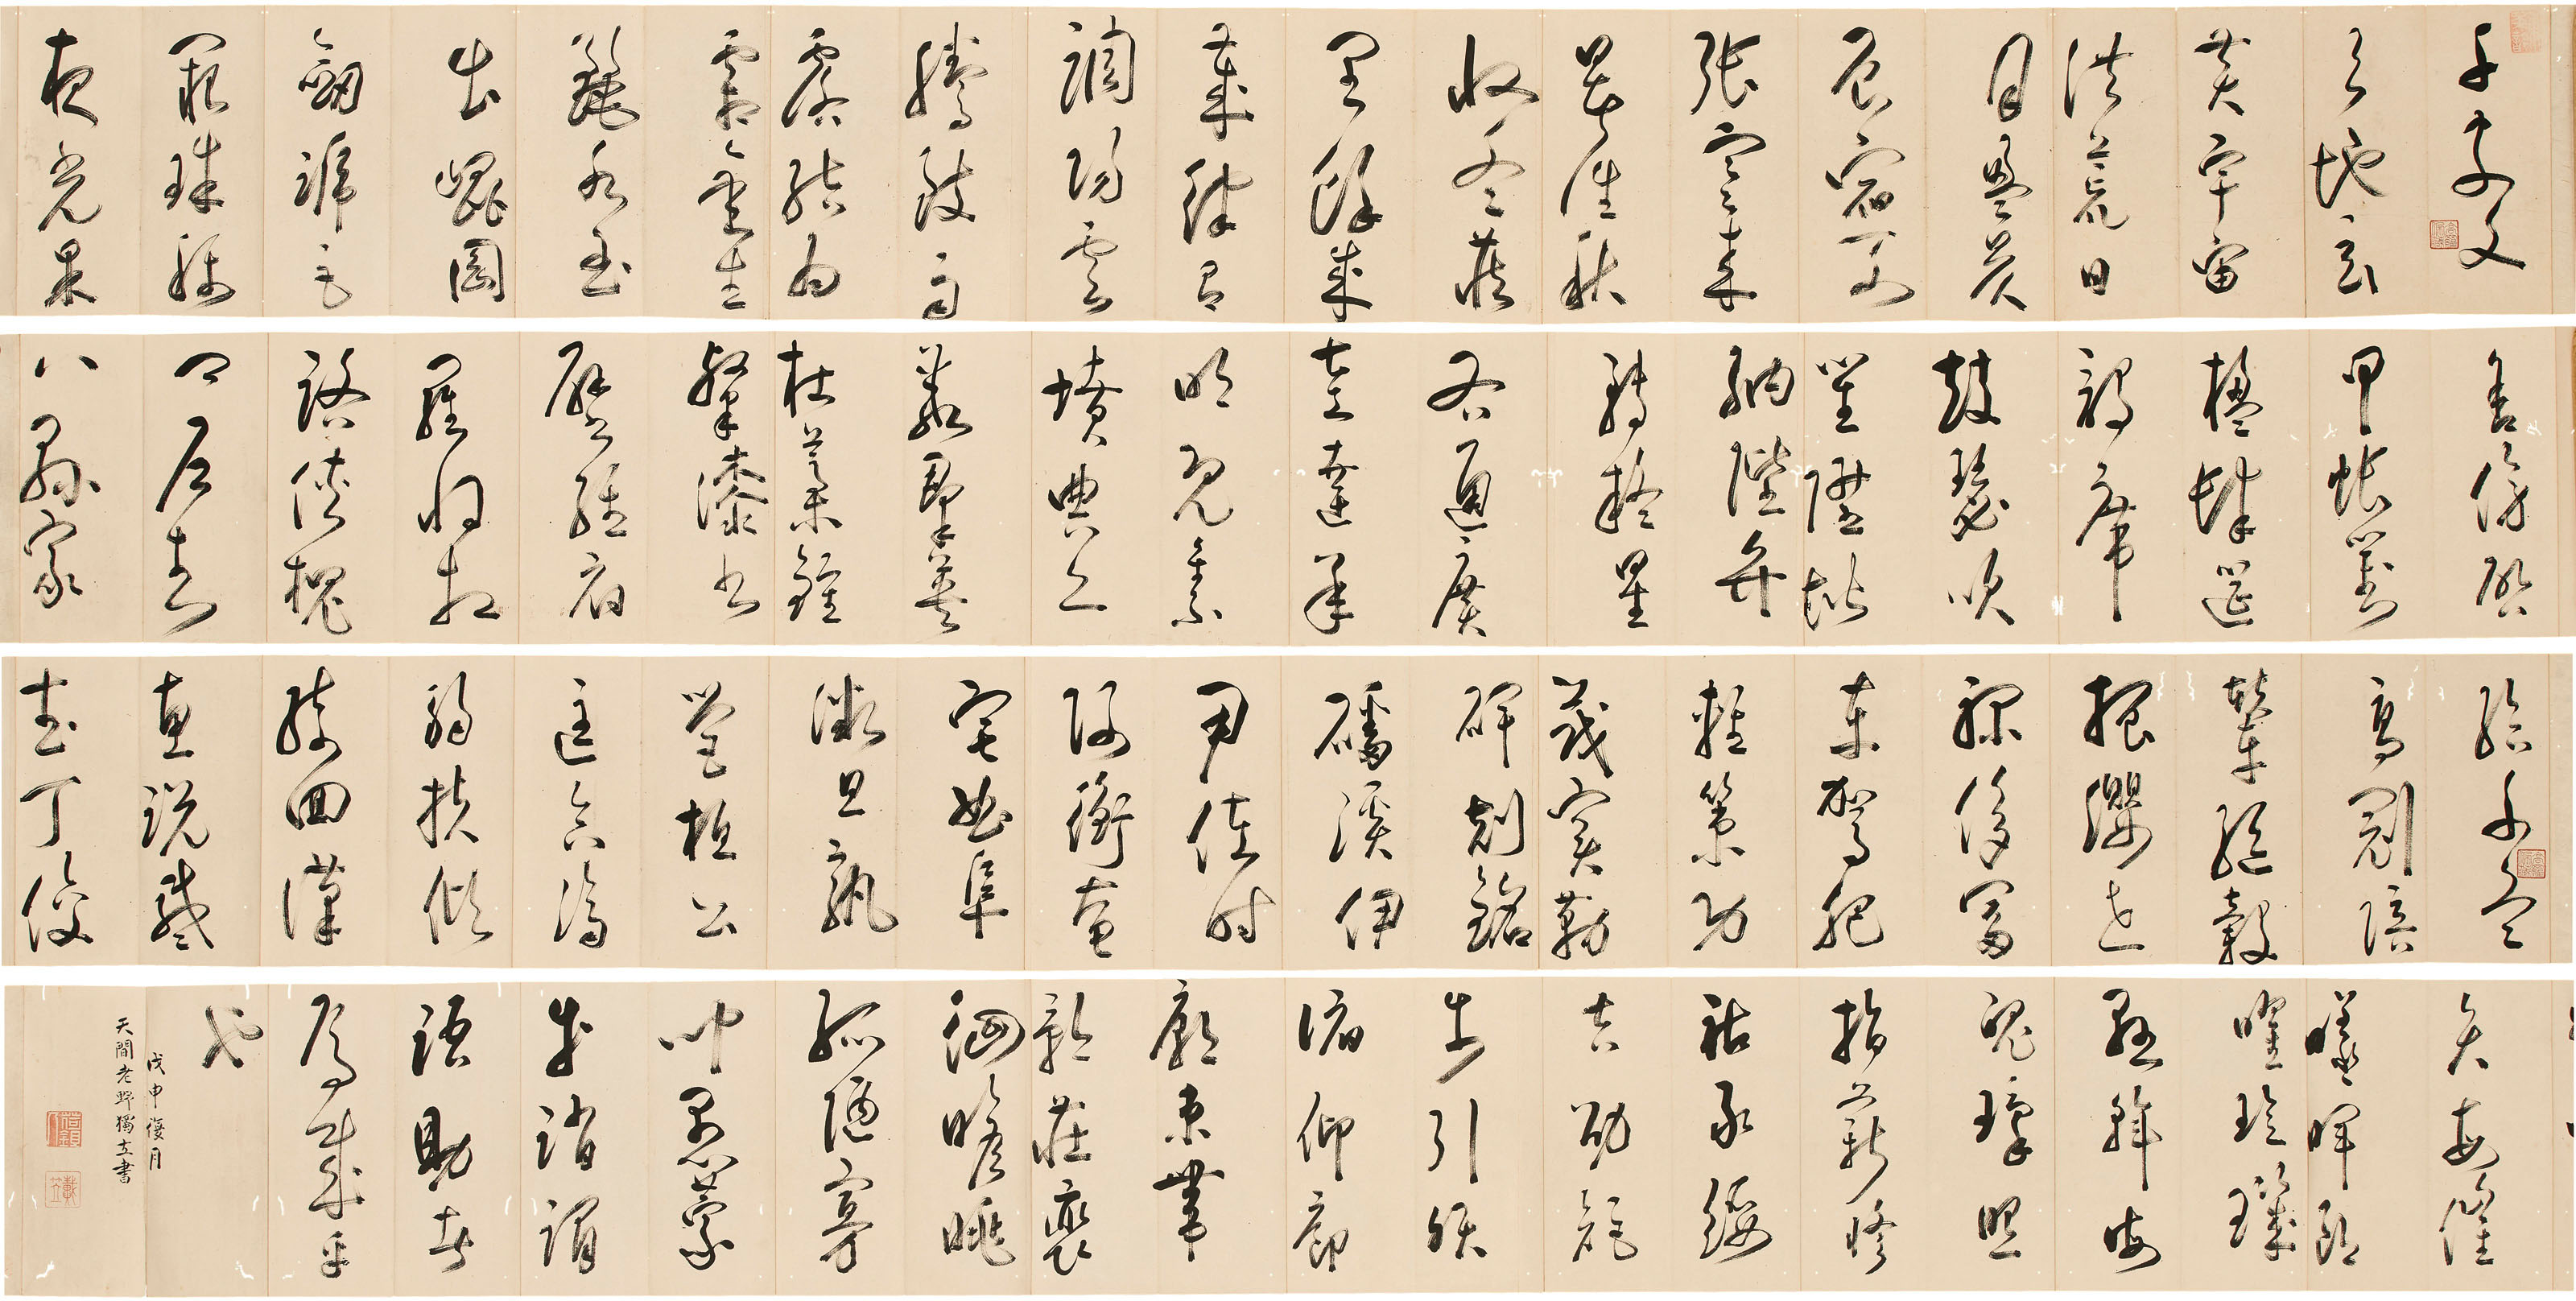 千字文
天地玄
黃宇宙
洪荒日
月盈昃
辰宿列
張寒來
暑往秋
收冬藏
閏餘成
歲律呂
調陽雲
騰致雨
露結為
霜金生
麗水玉
出崑岡
劍號巨
闕珠稱
夜光果
舍傍啓
甲帳對
楹肆筵
設席
鼓瑟吹
笙陞階
納陛弁
轉疑星
右通廣
左達承
明既集
墳典亦
聚群英
杜藁鍾
隸漆書
壁經府
羅將相
路俠槐
卿戶封
八縣家
給千兵
高冠陪
輦驅轂
振纓世
祿侈富
車駕肥
輕策功
茂實勒
碑刻銘
磻溪伊
尹佐時
阿衡奄
宅曲阜
微旦孰
營桓公
匡合濟
弱扶傾
綺回漢
惠說感
武丁俊
矢每催
曦暉朗
曜璇璣
懸斡晦
魄環照
指薪修
祜永綏
吉劭矩
步引領
俯仰廊
廟束帶
矜莊裵
徊瞻眺
孤陋寡
聞愚蒙
等誚謂
語助者
焉哉乎
也
戊申復月
天閒老野獨立書